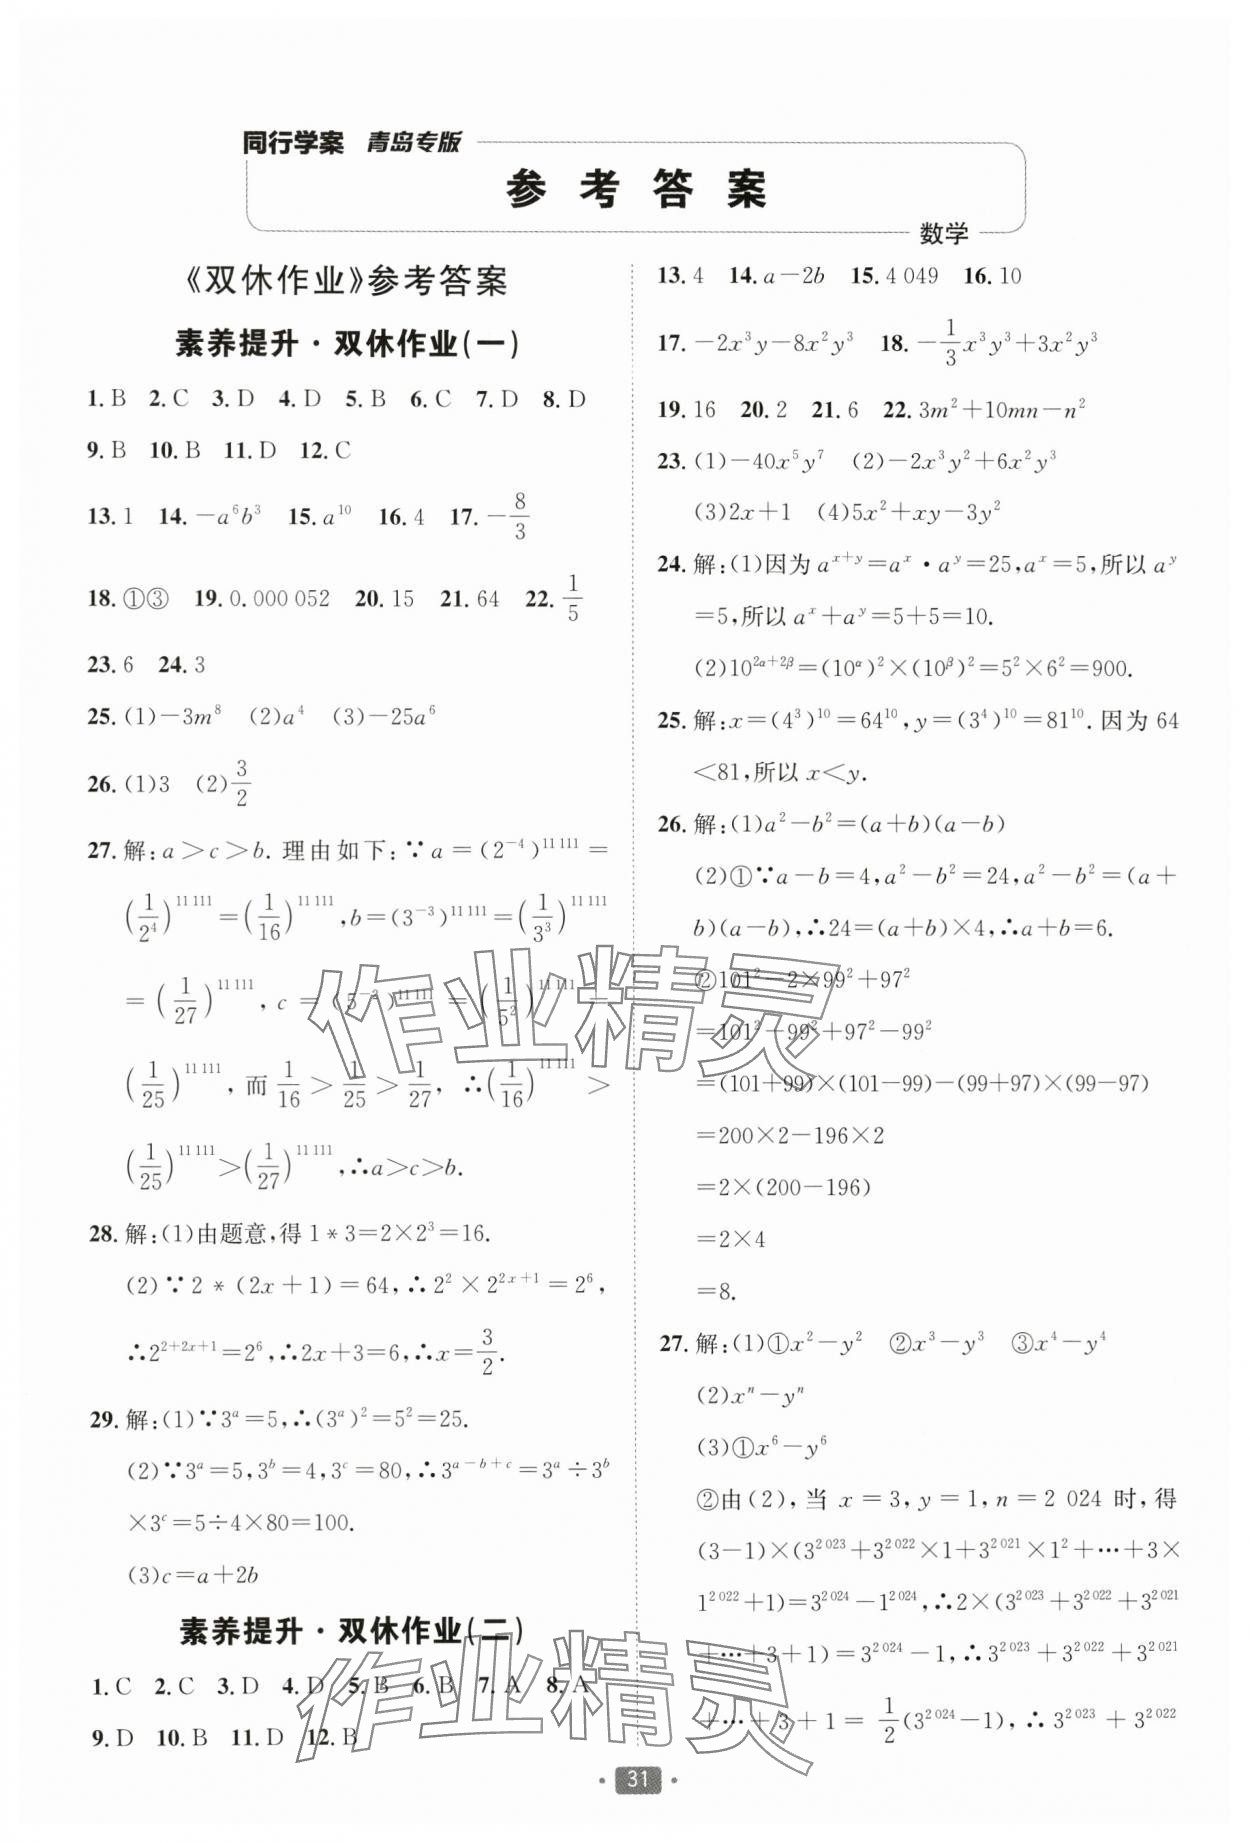 同行学案 青岛专版
参考答案
数学
《双休作业》参考答案
素养提升·双休作业(一)
1.B 2.C 3.D 4.D 5.B 6.C 7.D 8.D
9.B 10.B 11.D 12.C
13.1 14.-a⁶b³ 15.a¹⁰ 16.4 17.-8/3
18.①③ 19.0.000 052 20.15 21.64 22.1/5
23.6 24.3
25.(1)-3m⁸ (2)a⁴ (3)-25a⁶
26.(1)3 (2)3/2
27.解:a>c>b.理由如下:∵a=(2⁻⁴)^{11 111}=
(1/2⁴)^{11 111}=(1/16)^{11 111},b=(3⁻³)^{11 111}=(1/3³)^{11 111}
=(1/27)^{11 111},c=(5⁻²)^{11 111}=(1/5²)^{11 111}=
(1/25)^{11 111},而1/16>1/25>1/27,∴(1/16)^{11 111}>
(1/25)^{11 111}>(1/27)^{11 111},∴a>c>b.
28.解:(1)由题意,得1*3=2×2³=16.
(2)∵2*(2x+1)=64,∴2²×2^{2x+1}=2⁶,
∴2^{2+2x+1}=2⁶,∴2x+3=6,∴x=3/2.
29.解:(1)∵3^a=5,∴(3^a)²=5²=25.
(2)∵3^a=5,3^b=4,3^c=80,∴3^{a-b+c}=3^a÷3^b
×3^c=5÷4×80=100.
(3)c=a+2b
素养提升·双休作业(二)
1.C 2.C 3.D 4.D 5.B 6.B 7.A 8.A
9.D 10.B 11.D 12.B
13.4 14.a-2b 15.4 049 16.10
17.-2x³y-8x²y³ 18.-1/3x³y³+3x²y³
19.16 20.2 21.6 22.3m²+10mn-n²
23.(1)-40x⁵y⁷ (2)-2x³y²+6x²y³
(3)2x+1 (4)5x²+xy-3y²
24.解:(1)因为a^{x+y}=a^x·a^y=25,a^x=5,所以a^y
=5,所以a^x+a^y=5+5=10.
(2)10^{2α+2β}=(10^α)²×(10^β)²=5²×6²=900.
25.解:x=(4³)¹⁰=64¹⁰,y=(3⁴)¹⁰=81¹⁰.因为64
<81,所以x<y.
26.解:(1)a²-b²=(a+b)(a-b)
(2)①∵a-b=4,a²-b²=24,a²-b²=(a+
b)(a-b),∴24=(a+b)×4,∴a+b=6.
②101²-2×99²+97²
=101²-99²+97²-99²
=(101+99)×(101-99)-(99+97)×(99-97)
=200×2-196×2
=2×(200-196)
=2×4
=8.
27.解:(1)①x²-y² ②x³-y³ ③x⁴-y⁴
(2)xⁿ-yⁿ
(3)①x⁶-y⁶
②由(2),当x=3,y=1,n=2 024时,得
(3-1)×(3^{2 023}+3^{2 022}×1+3^{2 021}×1²+…+3×
1^{2 022}+1)=3^{2 024}-1^{2 024},∴2×(3^{2 023}+3^{2 022}+3^{2 021}
+…+3+1)=3^{2 024}-1,∴3^{2 023}+3^{2 022}+3^{2 021}
+…+3+1=1/2(3^{2 024}-1),∴3^{2 023}+3^{2 022}
作业精灵
作业精灵
·31·